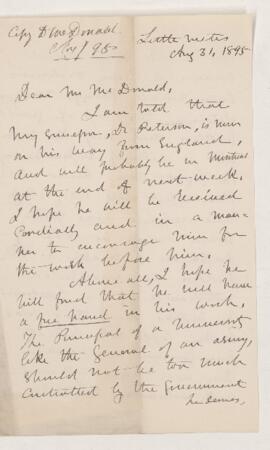 Copy D McDonald
Little Metis
Aug 31, 1895
Dear Mr McDonald,
I am told that
my successor, Dr Peterson, is now
on his way from England,
and will probably be in Montreal
at the end of next week.
I hope he will be received
cordially and in a man-
ner to encourage him for
the work before him.
Above all, I hope he
will find that he will have
a free hand in his work.
The Principal of a University
like the General of an army,
should not be too much
controlled by the Government
he serves,